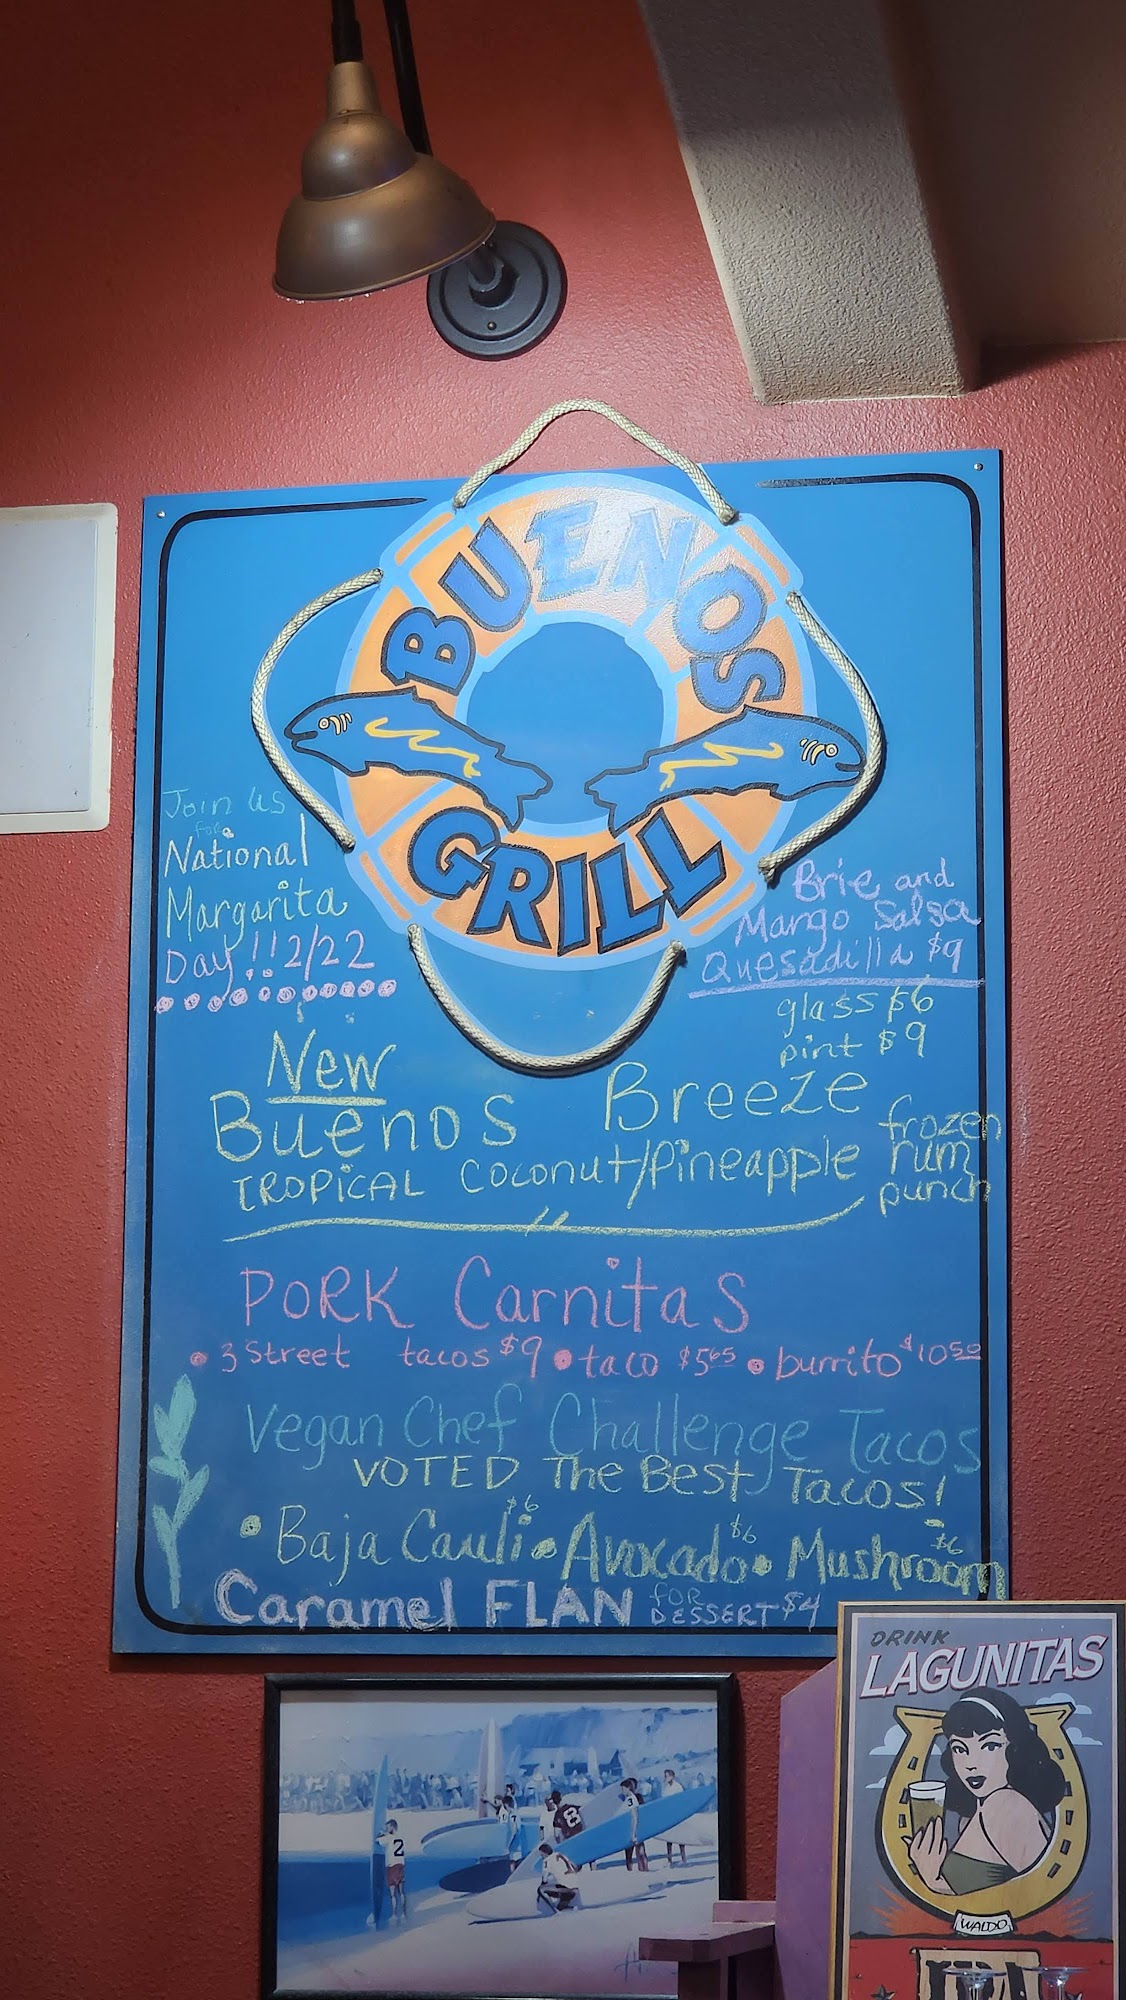 BUENOS
GRILL
Join us
for
National
Margarita
Day!! 2/22
Brie and
Mango Salsa
Quesadilla $9
glass $6
pint $9
New
Buenos Breeze
TROPICAL Coconut/Pineapple
frozen
rum
punch
PORK Carnitas
• 3 Street tacos $9 • taco $5.65 • burrito $10.50
Vegan Chef Challenge Tacos
VOTED The Best Tacos!
• Baja Cauli $6 • Avocado $6 • Mushroom $6
Caramel FLAN FOR DESSERT $4
DRINK
LAGUNITAS
WALDO
2
8
3